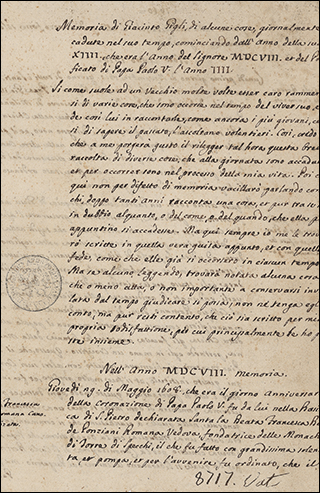 Memoria di Giacinto Gigli, di alcune cose, giornalmente ac
cadute nel suo tempo, cominciando dall'Anno della sua
XIIII. che era l'Anno del Signore MDCVIII. et del Ponti
ficato di Papa Paolo V. l'Anno IIII.
Si come suole ad un Vecchio molte volte esser caro rammentar
si di varie cose, che sono occorse nel tempo del viver suo, e
de così lui in raccontarle, come ancora i più giovani, co
si di sapere il passato, l'ascoltano volentieri. Così, credo
che a me porgerà gusto il rileggere tal hora questa breve
raccolta di diverse cose, che alla giornata sono accadute
et per occorrer sono nel processo della mia vita. Poi
qui non per difetto di memoria vacillarò parlando co
chi, doppo tanti anni racconta una cosa, et pur tra se
in dubbio alquanto, o del come, o del quando, che ella
appuntino si accadesse. Ma qui sempre io me le trove
rò scritte in quella vera guisa appunto, et con quella
fede, come che elle già si occorsero in ciascun tempo
Ma se alcuno leggendo, trovarà notata alcuna cosa
che o meno utile, o non importante a conservarsi
lata dal tempo giudicare si possa; non ne tenga egli
conto, ma pur resti contento, che ciò sia scritto per mia
propria sodisfattione, per cui principalmente
re insieme.
Nell' Anno MDCVIII. memoria.
Giovedì 29. di Maggio 1608. che era il giorno Anniversar
della Coronazione di Papa Paolo V. fu da lui nella Basilica
di S. Pietro dichiarata Santa la Beata Francesca Ro
de Ponziani Romana Vedova fondatrice delle Monache
di Torre di Specchi, il che fu fatto con grandissima solen
ta et pompa, et per l'avvenire fu ordinato, che il
Francesca
Romana Cano
nizata.
8717. Vat